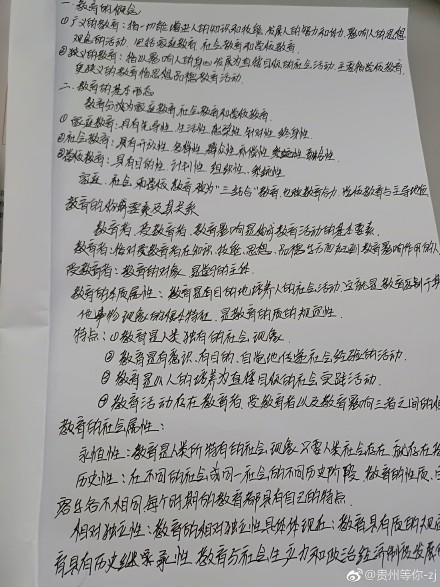 一、教育的概念
①广义的教育：指一切能增进人的知识和技能、发展人的智力和体力、影响人的思想
观念的活动，包括家庭教育、社会教育和学校教育
②狭义的教育：指以影响人的身心发展为直接目的的社会活动，主要指学校教育，
二、教育的基本形态
教育分成为家庭教育社会教育和学校教育
①家庭教育：具有先导性、生活性、感染性、针对性、终身性
②社会教育：具有开放性、群众性、补偿性、融合性
③学校教育：具有目的性、计划性、组织性、系统性
家庭、社会和学校教育被称为“三结合”教育，也称教育合力，学校教育占主导地位
教育的构成要素及其关系
教育者、受教育者、教育影响是构成教育活动的基本要素
教育者：指对受教育者在知识、技能、思想、品德等方面起到教育影响作用的人
受教育者：教育的对象，是学习的主体
教育的本质属性：教育是有目的地培养人的社会活动，这就是教育区别于其
他事物现象的根本特征，是教育的质的规定性
特点：①教育是人类独有的社会现象
②教育是有意识、有目的、自觉地传递社会经验的活动
③教育是以人的培养为直接目标的社会实践活动
④教育活动存在教育者、受教育者以及教育影响三者之间的
教育的社会属性：
永恒性：教育是人类所特有的社会现象，只要人类社会存在，就存在
历史性：在不同的社会或同一社会的不同历史阶段，教育的性质、
各不相同，每个时期的教育都具有自己的特点
相对独立性：教育的相对独立性具体体现在：教育具有质的规定
育具有历史继承性，教育与社会生产力和政治经济制度发展
@贵州等你-zj